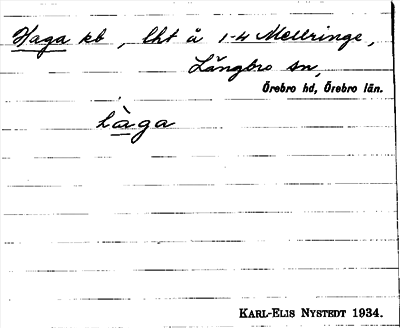 Haga kb, lht å 1-4 Mellringe,
Längbro sn,
Örebro hd, Örebro län.
hàga
Karl-Elis Nystedt 1934.